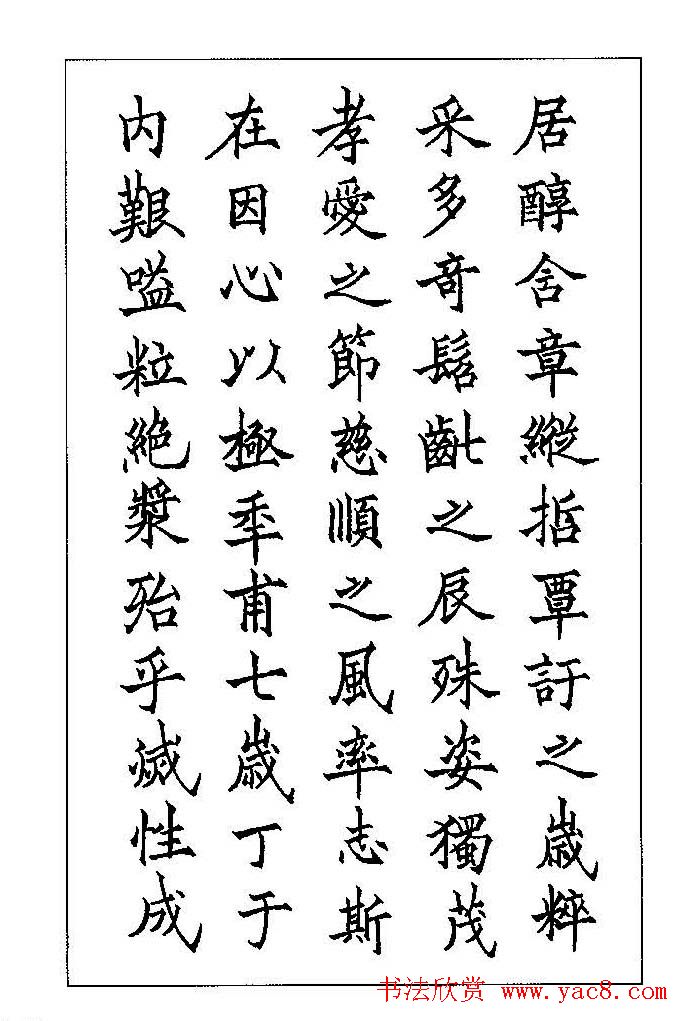 居醇含章縱哲覃訏之歲粹
采多奇髫齔之辰殊姿獨茂
孝愛之節慈順之風率志斯
在因心以極年甫七歲丁于
内艱嗌粒絕漿殆乎滅性成
书法欣赏 www.yac8.com